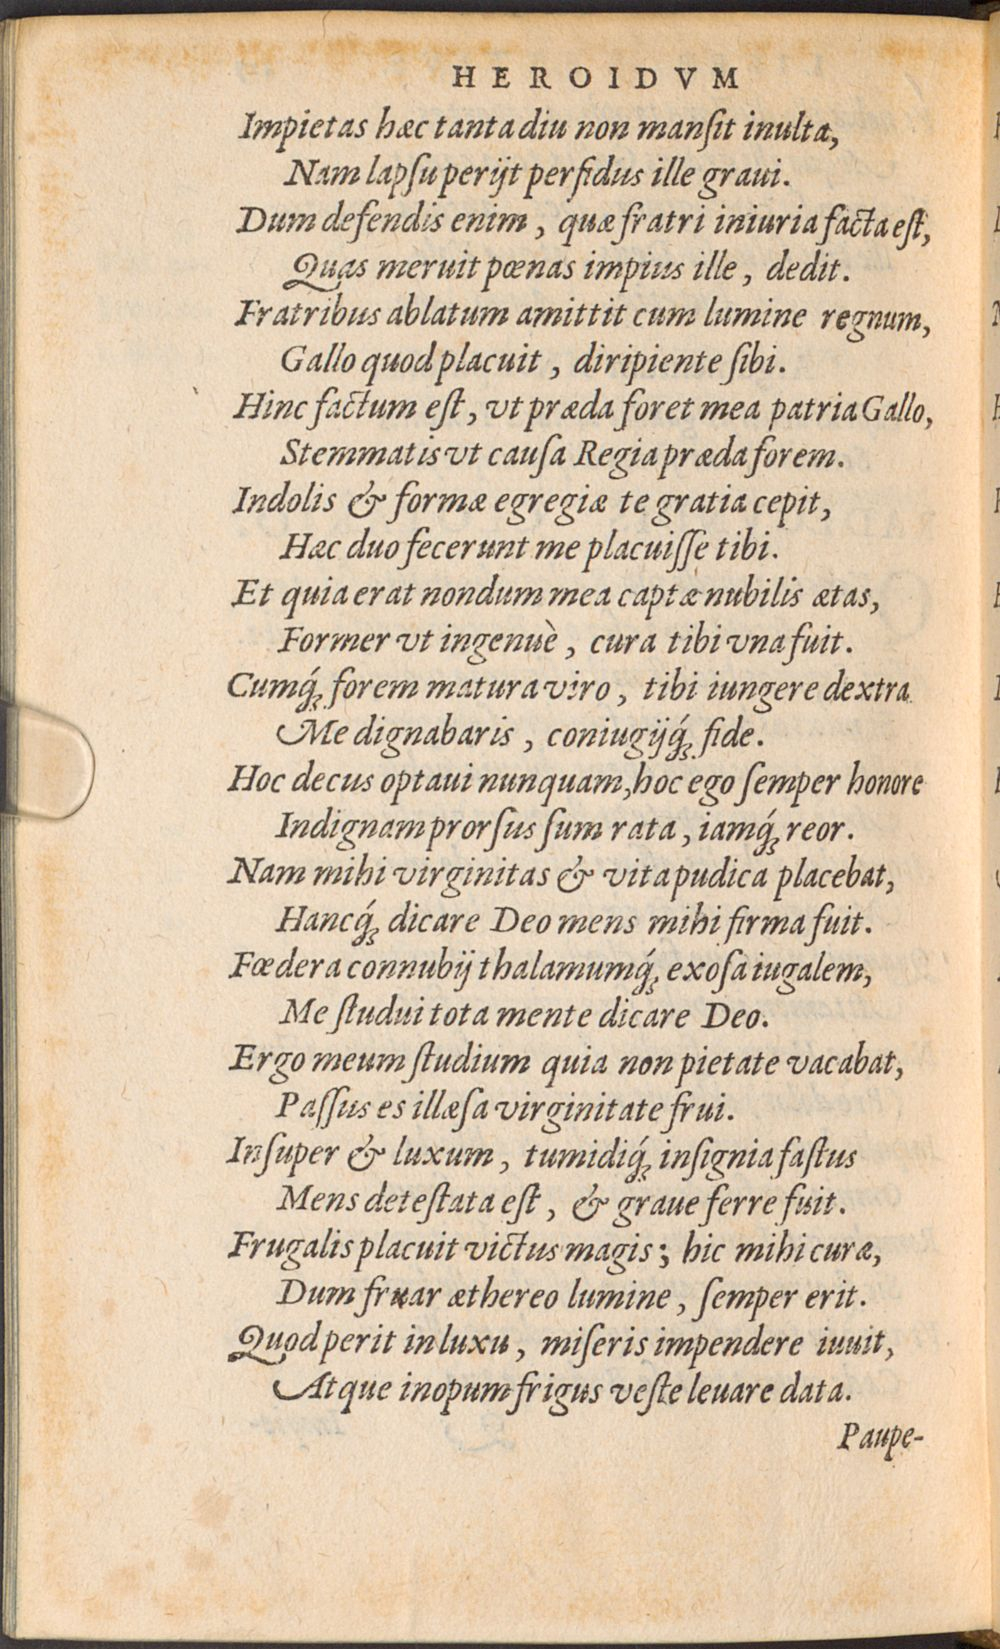 HEROIDVM
Impietas hæc tanta diu non manſit inulta,
Nam lapſu perijt perfidus ille graui.
Dum defendis enim, quæ fratri iniuria facta eſt,
Quas meruit pœnas impius ille, dedit.
Fratribus ablatum amittit cum lumine regnum,
Gallo quod placuit, diripiente ſibi.
Hinc factum eſt, vt præda foret mea patria Gallo,
Stemmatis vt cauſa Regia præda forem.
Indolis & formæ egregiæ te gratia cepit,
Hæc duo fecerunt me placuiſſe tibi.
Et quia erat nondum mea captæ nubilis ætas,
Former vt ingenuè, cura tibi vna fuit.
Cumq́; forem matura viro, tibi iungere dextra
Me dignabaris, coniugijq́; fide.
Hoc decus optaui nunquam, hoc ego ſemper honore
Indignam prorſus ſum rata, iamq́; reor.
Nam mihi virginitas & vita pudica placebat,
Hancq́; dicare Deo mens mihi firma fuit.
Fœdera connubij thalamumq́; exoſa iugalem,
Me ſtudui tota mente dicare Deo.
Ergo meum ſtudium quia non pietate vacabat,
Paſſus es illæſa virginitate frui.
Inſuper & luxum, tumidiq́; inſignia faſtus
Mens deteſtata eſt, & graue ferre fuit.
Frugalis placuit victus magis; hic mihi curæ,
Dum fruar æthereo lumine, ſemper erit.
Quod perit in luxu, miſeris impendere iuuit,
Atque inopum frigus veſte leuare data.
Paupe-